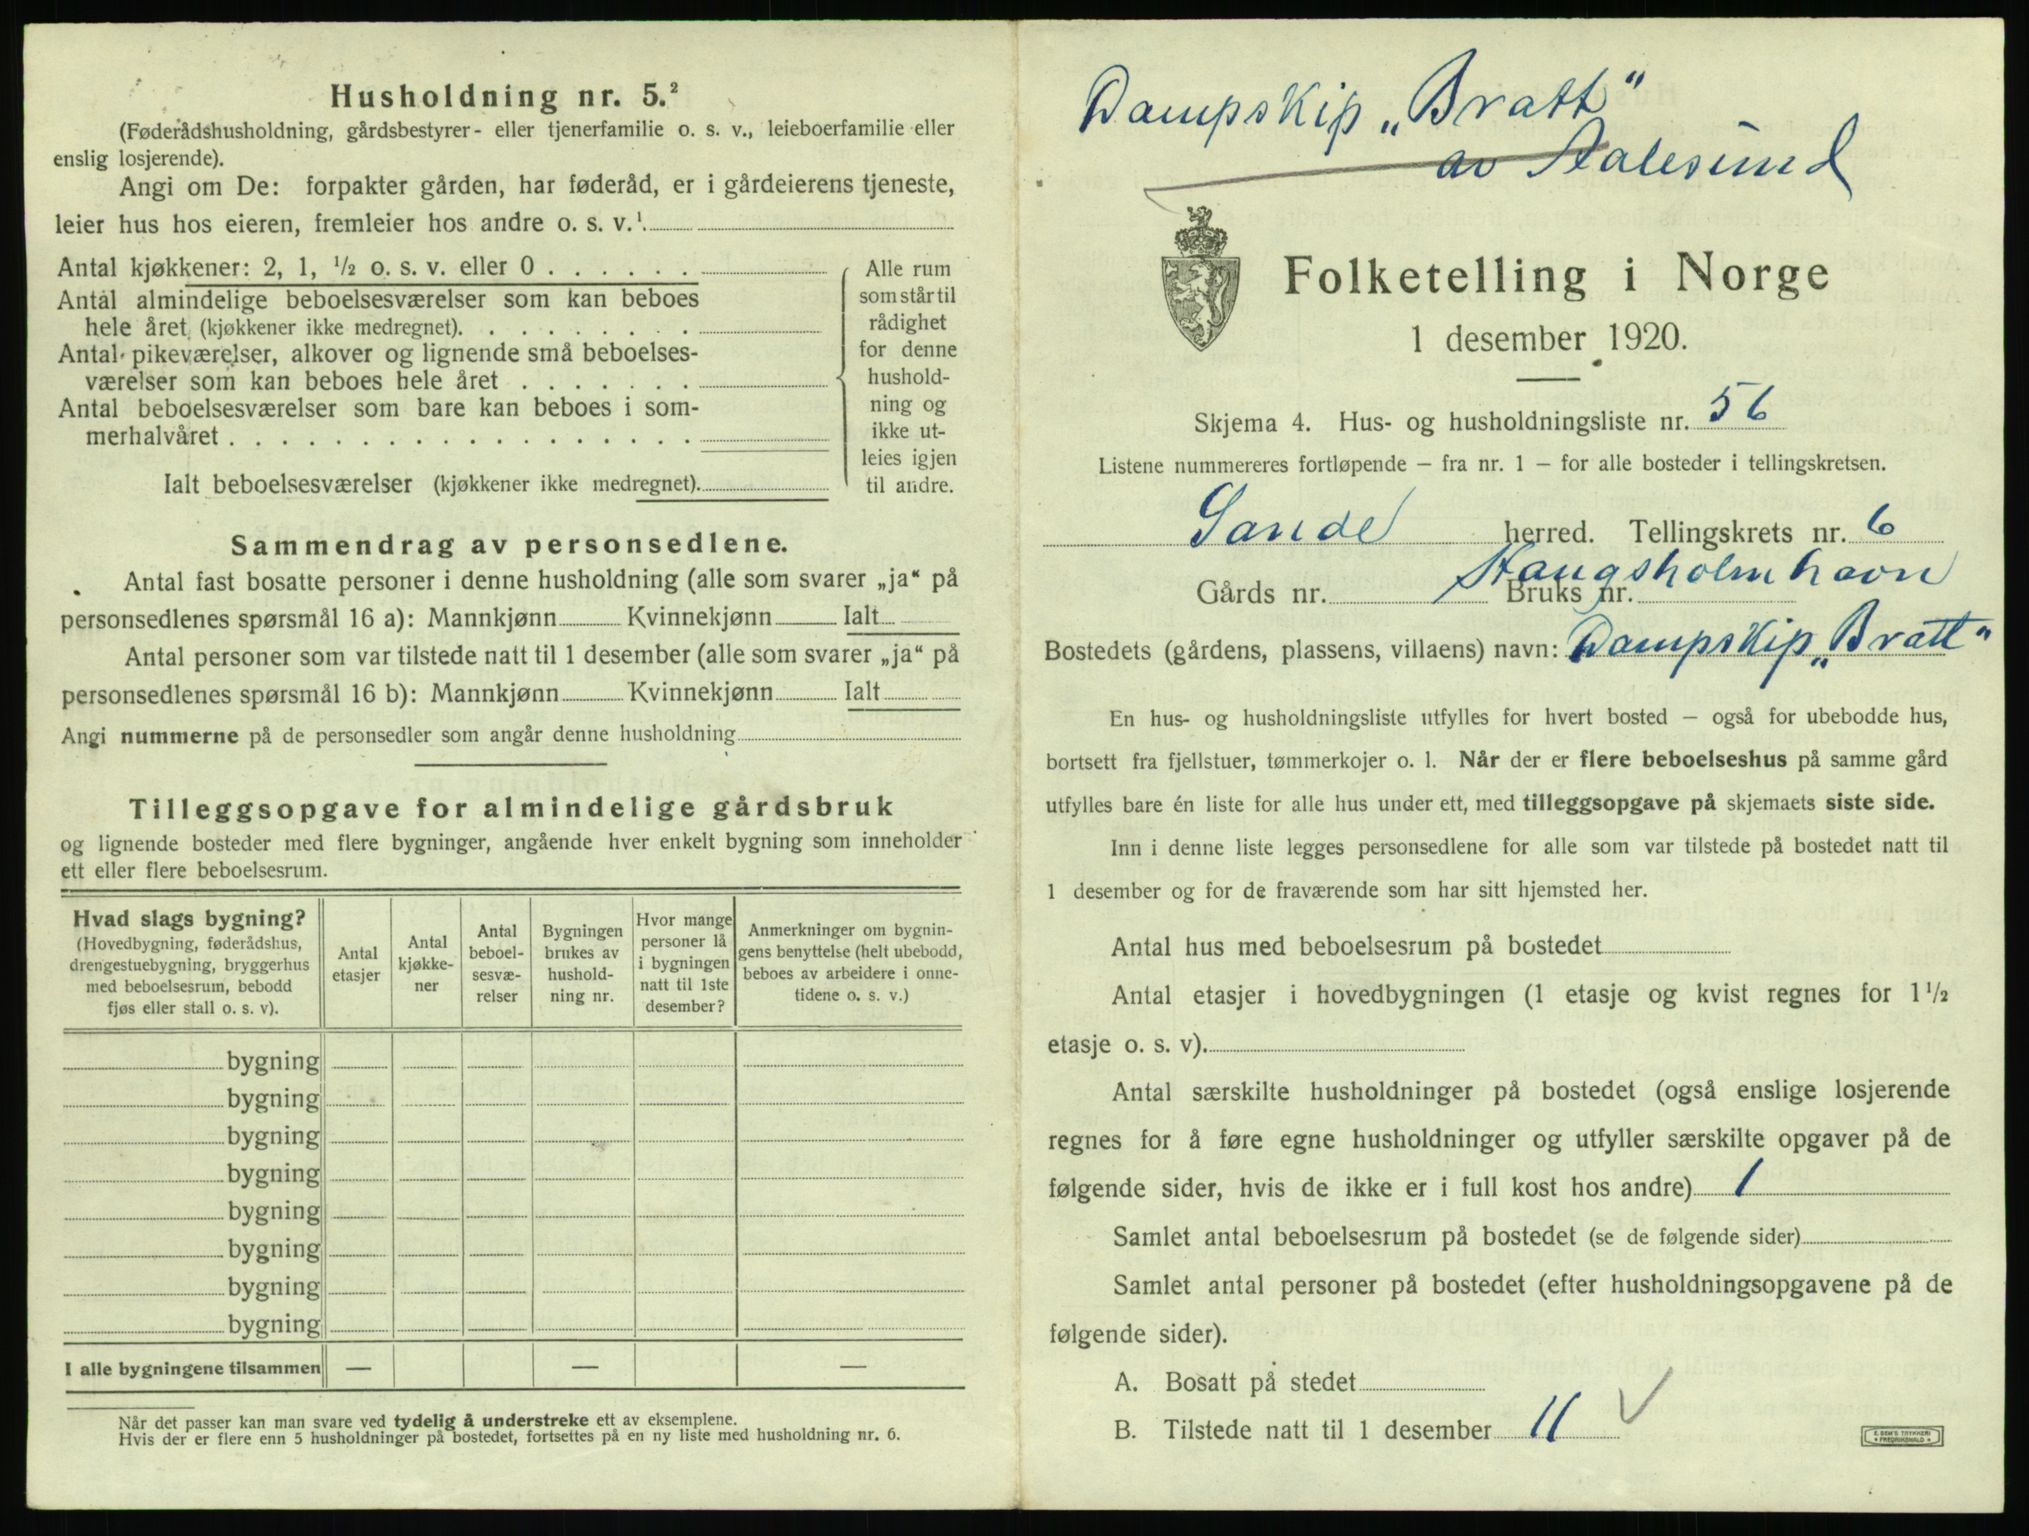 Husholdning nr. 5.²
(Føderådshusholdning, gårdsbestyrer- eller tjenerfamilie o. s. v., leieboerfamilie eller
enslig losjerende).
Angi om De: forpakter gården, har føderåd, er i gårdeierens tjeneste,
leier hus hos eieren, fremleier hos andre o. s. v.¹
Antal kjøkkener: 2, 1, ½ o. s. v. eller 0
Antal almindelige beboelsesværelser som kan beboes
hele året (kjøkkener ikke medregnet).
Antal pikeværelser, alkover og lignende små beboelses-
værelser som kan beboes hele året
Antal beboelsesværelser som bare kan beboes i som-
merhalvåret
Ialt beboelsesværelser (kjøkkener ikke medregnet).
Alle rum
som står til
rådighet
for denne
hushold-
ning og
ikke ut-
leies igjen
til andre.
Sammendrag av personsedlene.
Antal fast bosatte personer i denne husholdning (alle som svarer „ja“ på
personsedlenes spørsmål 16 a): Mannkjønn Kvinnekjønn Ialt
Antal personer som var tilstede natt til 1 desember (alle som svarer „ja“ på
personsedlenes spørsmål 16 b): Mannkjønn Kvinnekjønn Ialt
Angi nummerne på de personsedler som angår denne husholdning
Tilleggsopgave for almindelige gårdsbruk
og lignende bosteder med flere bygninger, angående hver enkelt bygning som inneholder
ett eller flere beboelsesrum.
Hvad slags bygning?
(Hovedbygning, føderådshus,
drengestuebygning, bryggerhus
med beboelsesrum, bebodd
fjøs eller stall o. s. v).
Antal
etasjer
Antal
kjøkke-
ner
Antal
beboel-
sesvæ-
relser
Bygningen
brukes av
hushold-
ning nr.
Hvor mange
personer lå
i bygningen
natt til 1ste
desember?
Anmerkninger om bygnin-
gens benyttelse (helt ubebodd,
beboes av arbeidere i onne-
tidene o. s. v.)
bygning
bygning
bygning
bygning
bygning
bygning
bygning
bygning
I alle bygningene tilsammen — — —
Når det passer kan man svare ved tydelig å understreke ett av eksemplene.
Hvis der er flere enn 5 husholdninger på bostedet, fortsettes på en ny liste med husholdning nr. 6.
Dampskip „Bratt“
av Aalesund
Folketelling i Norge
1 desember 1920.
Skjema 4. Hus- og husholdningsliste nr. 56
Listene nummereres fortløpende – fra nr. 1 – for alle bosteder i tellingskretsen.
Sande herred. Tellingskrets nr. 6
Haugsholmhavn
Gårds nr. Bruks nr.
Bostedets (gårdens, plassens, villaens) navn: Dampskip „Bratt“
En hus- og husholdningsliste utfylles for hvert bosted – også for ubebodde hus,
bortsett fra fjellstuer, tømmerkojer o. l. Når der er flere beboelseshus på samme gård
utfylles bare én liste for alle hus under ett, med tilleggsopgave på skjemaets siste side.
Inn i denne liste legges personsedlene for alle som var tilstede på bostedet natt til
1 desember og for de fraværende som har sitt hjemsted her.
Antal hus med beboelsesrum på bostedet
Antal etasjer i hovedbygningen (1 etasje og kvist regnes for 1½
etasje o. s. v).
Antal særskilte husholdninger på bostedet (også enslige losjerende
regnes for å føre egne husholdninger og utfyller særskilte opgaver på de
følgende sider, hvis de ikke er i full kost hos andre) 1
Samlet antal beboelsesrum på bostedet (se de følgende sider)
Samlet antal personer på bostedet (efter husholdningsopgavene på de
følgende sider).
A. Bosatt på stedet
B. Tilstede natt til 1 desember 11
E. SEM'S TRYKKERI
FREDRIKSHALD